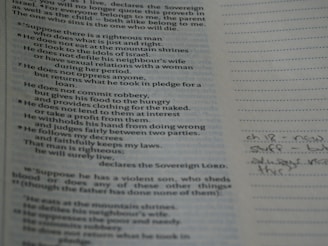 as I live, declares the Sovereign
you will no longer quote this proverb in
Israel. For everyone belongs to me, the parent
as well as the child – both alike belong to me.
The one who sins is the one who will die.
"Suppose there is a righteous man
who does what is just and right.
He does not eat at the mountain shrines
or look to the idols of Israel.
He does not defile his neighbour's wife
or have sexual relations with a woman
during her period.
He does not oppress anyone,
but returns what he took in pledge for a
loan.
He does not commit robbery,
but gives his food to the hungry
and provides clothing for the naked.
He does not lend to them at interest
or take a profit from them.
He withholds his hand from doing wrong
and judges fairly between two parties.
He follows my decrees
and faithfully keeps my laws.
That man is righteous;
he will surely live,
declares the Sovereign LORD.
"Suppose he has a violent son, who sheds
blood or does any of these other things
(though the father has done none of them):
"He eats at the mountain shrines.
He defiles his neighbour's wife.
He oppresses the poor and needy.
He commits robbery.
He does not return what he took in
pledge.
ch 18 - new